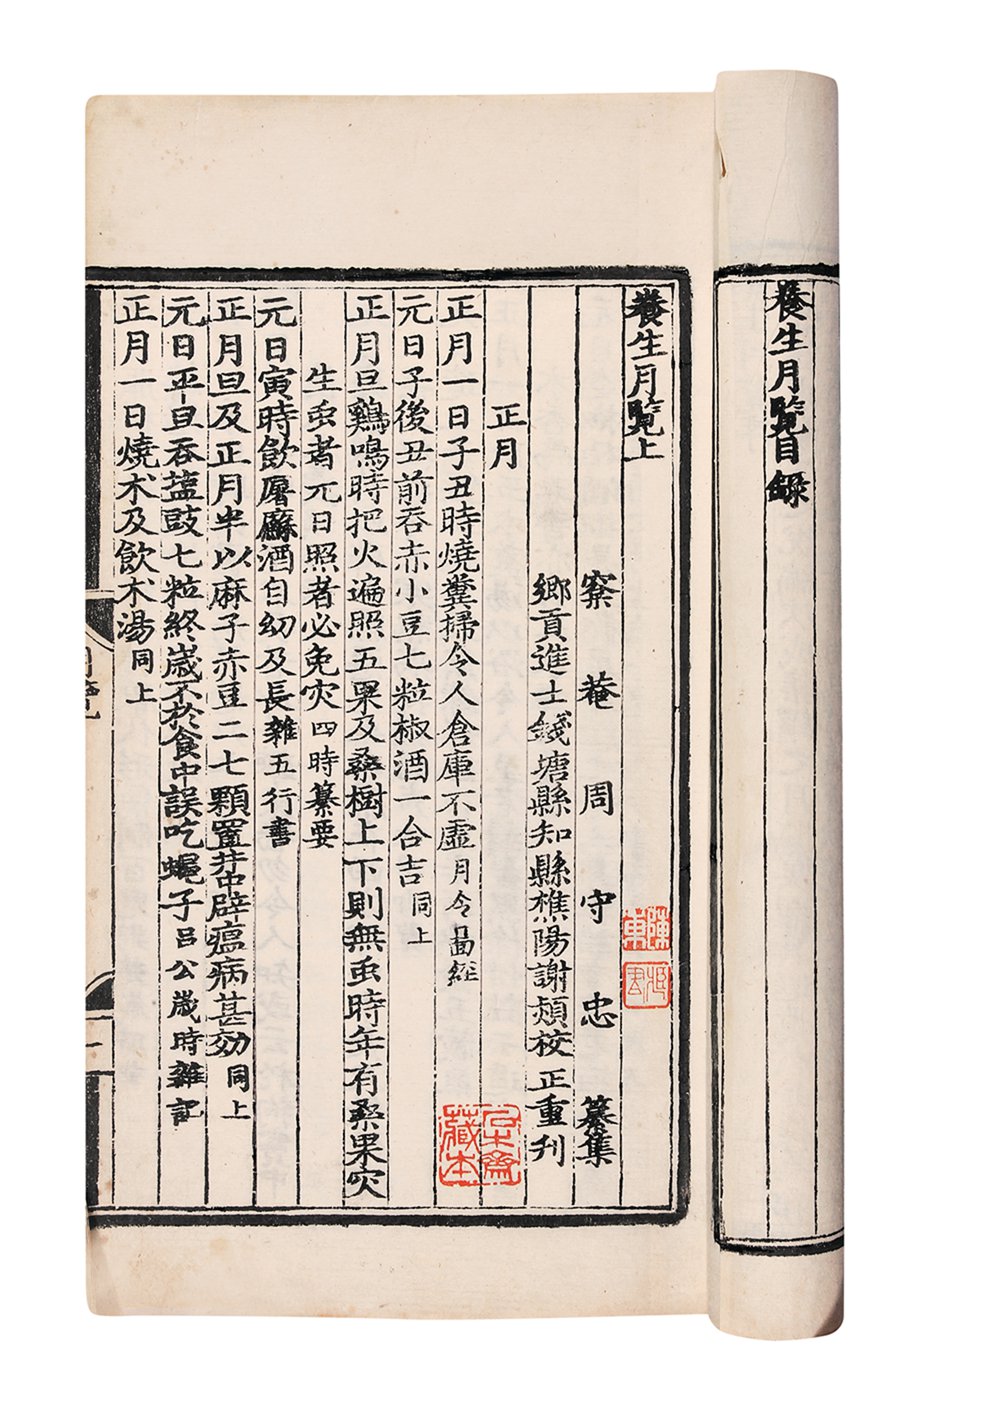 養生月覽目錄
養生月覽上
寮菴周守忠纂集
鄉貢進士錢塘縣知縣樵陽謝熲校正重刊
正月
正月一日子丑時燒糞掃令人倉庫不虛月令啚經
元日子後丑前吞赤小豆七粒椒酒一合吉同上
正月旦鷄鳴時把火遍照五果及桑樹上下則無䖝時年有桑果灾
生䖝者元日照者必免灾四時纂要
元日寅時飲屠蘇酒自幼及長雜五行書
正月旦及正月半以麻子赤豆二七顆置井中辟瘟病甚効同上
元日平旦吞塩豉七粒終歲不於食中誤吃蠅子呂公歲時雜記
正月一日燒术及飲术湯同上
月覽
一
陳東
藏本